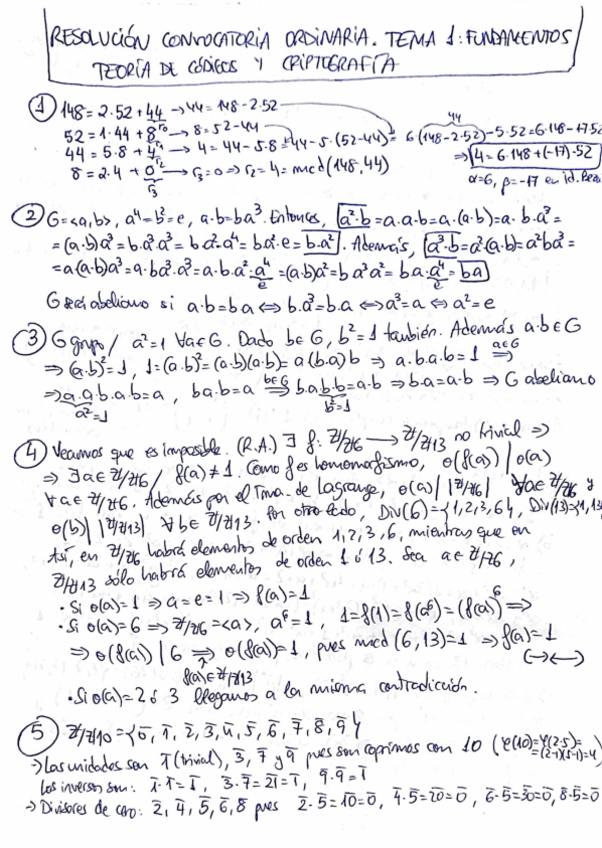 RESOLUCIÓN CONVOCATORIA ORDINARIA. TEMA 1: FUNDAMENTOS
TEORÍA DE CÓDIGOS Y CRIPTOGRAFÍA
① 148 = 2·52 + 44 → 44 = 148 - 2·52
52 = 1·44 + 8 → 8 = 52 - 44
44 = 5·8 + 4 → 4 = 44 - 5·8 = 44 - 5·(52-44) = 6(148-2·52) - 5·52 = 6·148 - 17·52
8 = 2·4 + 0 → r₃ = 0 ⇒ r₂ = 4 = mcd(148,44) ⇒ 4 = 6·148 + (-17)·52
α=6, β=-17 en id.
② G = <a,b>, a⁴ = b² = e, a·b = ba³. Entonces, a²·b = a·a·b = a·(a·b) = a·b·a³ =
= (a·b)a³ = b·a³·a³ = b·a²·a⁴ = b·a²·e = b·a². Además, a³·b = a²(a·b) = a²ba³ =
= a(a·b)a³ = a·ba³·a³ = a·b·a²·a⁴ = (a·b)a² = b a³a² = ba·a⁴ = ba
G será abeliano si a·b = ba ⇔ b·a³ = b·a ⇔ a³ = a ⇔ a² = e
③ G grupo / a² = 1 ∀a∈G. Dado b∈G, b² = 1 también. Además a·b∈G
⇒ (a·b)² = 1, 1 = (a·b)² = (a·b)(a·b) = a(b·a)b ⇒ a·b·a·b = 1 ⇒
⇒ a·a·b·a·b = a, ba·b = a ⇒ b·a·b·b = a·b ⇒ b·a = a·b ⇒ G abeliano
a²=1 b²=1
④ Veamos que es imposible. (R.A.) ∃ f: ℤ/ℤ6 → ℤ/ℤ13 no trivial ⇒
⇒ ∃a∈ℤ/ℤ6 / f(a)≠1. Como f es homomorfismo, o(f(a)) | o(a)
∀a∈ℤ/ℤ6. Además por el Tma. de Lagrange, o(a) | |ℤ/ℤ6| ∀a∈ℤ/ℤ6 y
o(b) | |ℤ/ℤ13| ∀b∈ℤ/ℤ13. Por otro lado, Div(6) = {1,2,3,6}, Div(13) = {1,13
Así, en ℤ/ℤ6 habrá elementos de orden 1,2,3,6, mientras que en
ℤ/ℤ13 sólo habrá elementos de orden 1 ó 13. Sea a∈ℤ/ℤ6,
• Si o(a)=1 ⇒ a = e = 1 ⇒ f(a) = 1
• Si o(a)=6 ⇒ ℤ/ℤ6 = <a>, a⁶ = 1, 1 = f(1) = f(a⁶) = (f(a))⁶ ⇒
⇒ o(f(a)) | 6 ⇒ o(f(a)) = 1, pues mcd(6,13) = 1 ⇒ f(a) = 1
f(a)∈ℤ/ℤ13 (→←)
• Si o(a) = 2 ó 3 llegamos a la misma contradicción.
⑤ ℤ/ℤ10 = {0̄, 1̄, 2̄, 3̄, 4̄, 5̄, 6̄, 7̄, 8̄, 9̄}
→ Las unidades son 1̄ (trivial), 3̄, 7̄ y 9̄ pues son coprimos con 10 (φ(10) = φ(2·5) = = (2-1)(5-1) = 4)
Los inversos son: 1̄·1̄ = 1̄, 3̄·7̄ = 2̄1̄ = 1̄, 9̄·9̄ = 1̄
→ Divisores de cero: 2̄, 4̄, 5̄, 6̄, 8̄ pues 2̄·5̄ = 1̄0̄ = 0̄, 4̄·5̄ = 2̄0̄ = 0̄, 6̄·5̄ = 3̄0̄ = 0̄, 8̄·5̄ = 0̄